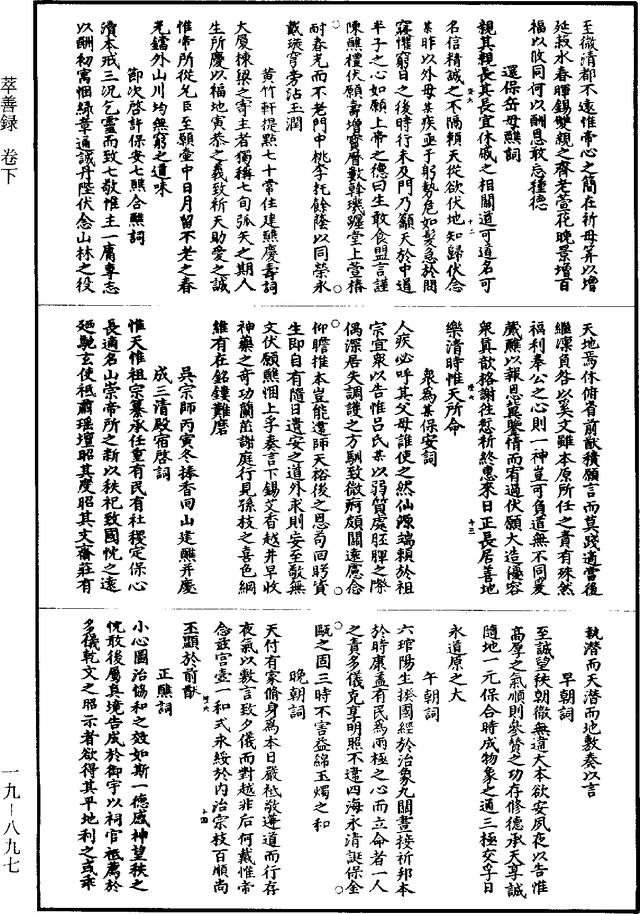 萃善録 卷下
一九—八九七
至微清都不遠惟帝心之簡在祈母筭以增
延菽水春暉錫雙親之齊老萱花晚景增百
福以攸同何以酬恩敢忘種德
還保岳母醮詞
親其親長其長宜休戚之相關道可道名可
名信精誠之不隔頼天從欲伏地知歸伏念
某昨以外母某疾亟于躬勢危如髮急於閻
寐懼窮日之後時行未及門乃籲天於中道
半子之心如願上帝之德曰生敢食盟言謹
陳醮禮伏願壽增寶曆數幹璣躔堂上萱椿
耐春光而不老門中桃李托餘蔭以同榮永
戴琰穹旁沾玉潤
黄竹軒提點七十常住建醮慶壽詞
大厦棟梁之寄主者獨稱七旬弧矢之期人
生所慶以福地寅恭之義致祈天助愛之誠
惟帝所從允臣至願壷中日月留不老之春
光鑪外山川均無窮之道味
節次啓許保安七醮合醮詞
瀆本戒三況乞靈而致七敬惟主一庸專志
以酬初寓悃緑章通誠丹陛伏念山林之役
天地焉休俯省前猷積願言而莫踐適當後
繼凛負咎以奚文雖本原所任之責有殊然
福利奉公之心則一神豈可負道無不同爰
蕆醮以報恩冀鑒情而宥過伏願大造優容
衆真歆格謝往愆祈終惠來日正長居善地
樂清時惟天所命
衆爲某保安詞
人疾必呼其父母誰使之然仙源端賴於祖
宗宜衆以告惟吕氏某以弱質處胚腪之際
偶深居失調護之方馴致微疴頗關遠慮念
仰瞻推本豈能違師天裕後之恩苟回躬資
生即自有隨日遺安之道外求則安至敬無
文伏願醮悃上孚奏言下錫艾香越井早收
神藥之奇功蘭茁謝庭行見孫枝之喜色綱
維有在銘鏤難磨
吳宗師丙寅冬捧香回山建醮并慶
成三清殿宿啓詞
惟天惟祖宗纂承任重有民有社稷定保心
長適名山崇帝所之新以秩祀致國忱之遠
廼馳玄使祗肅瑶壇昭其度昭其文齋莊有
執潛而天潛而地敷奏以言
早朝詞
至誠望秩朝徹無違大本欲安夙夜以告惟
高厚之氣順則參贊之功存修德承天享誠
隨地一元保合時成物象之通三極交孚日
永道原之大
午朝詞
六琯陽生接國經於治象九閽晝接祈邦本
於時康蓋有民爲兩極之心而立命者一人
之責多儀克享明照不違四海永清誕保金
甌之固三時不害益綿玉燭之和
晚朝詞
天付有家脩身爲本日嚴祗敬遵道而行存
夜氣以數言致夕儀而對越非后何戴惟帝
念兹宫壼一和式永綏於内治宗枝百順尚
丕顯於前猷
正醮詞
小心圖治協和之效如斯一德感神望秩之
忱敢後屬真境告成於御宇以祠官祗薦於
多儀乾文之昭示者欲得其平地利之或乖